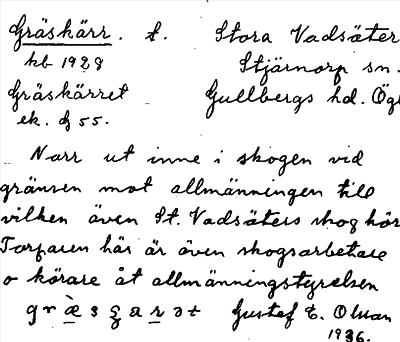 Gräskärr. t. Stora Vadsäter
hb 1928 Stjärnorp sn.
Gräskärret Gullbergs hd. Ögl
ek. bl 55.
Norr ut inne i skogen vid
gränsen mot allmänningen till
vilken även St. Vadsäters skog hör
Torparen här är även skogsarbetare
o körare åt allmänningsstyrelsen
Gustaf E. Olsson
1936.